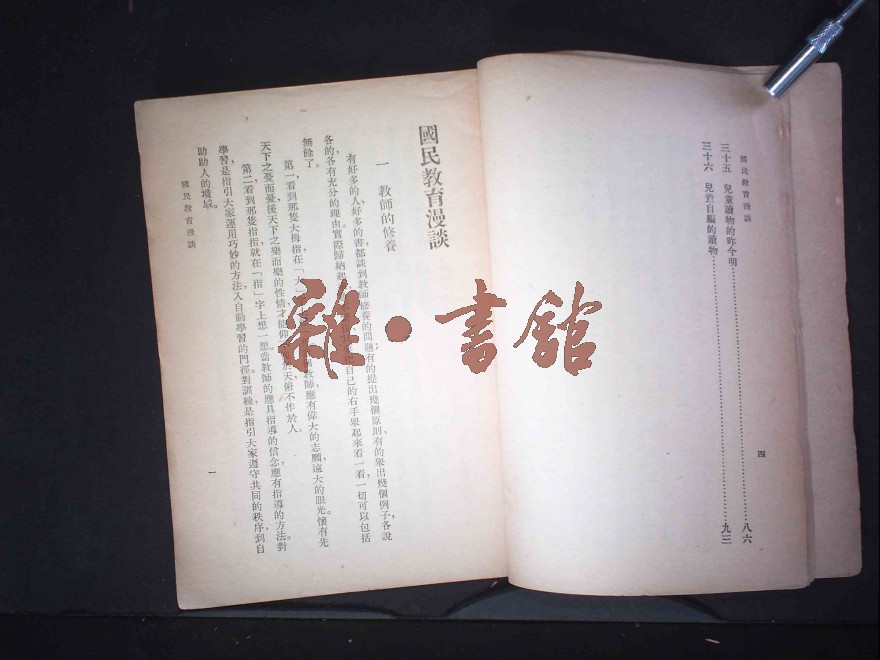 國民教育漫談
三十五 兒童讀物的昨今明……八六
三十六 兒童自編的讀物……九三
四
國民教育漫談
一 教師的修養
有好多的人好多的書都談到教師修養的問題有的提出幾個原則、有的舉出幾個例子各說
各的各有充分的理由。實際歸納起
自己的右手舉起來看一看一切可以包括
無餘了。
第一、看到那隻大拇指在「大
教師應有偉大的志願、遠大的眼光。懷有先
天下之憂而憂後天下之樂而樂的性情才能仰
天俯不怍於人。
第二、看到那隻指指就在「指」字上想一想當教師的應具指導的信念應有指導的方法。對
學習是指引大家運用巧妙的方法、入自動學習的門徑對訓練是指引大家遵守共同的秩序到自
助助人的境域。
國民教育漫談
一
雜·書館